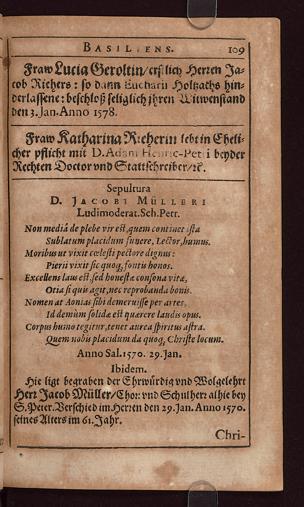 BASILIENS. 109
Fraw Lucia Geroltin/ erstlich Herren Ja-
cob Richers: so dann Eucharii Holtzachs hin-
derlassene: beschloß seliglich jhren Witwenstand
den 3. Jan. Anno 1578.
Fraw Katharina Richerin lebt in Eheli-
cher pflicht mit D. Adam Henric-Petri beyder
Rechten Doctor vnd Stattschreiber/ ꝛc.
Sepultura
D. JACOBI MÜLLERI
Ludimoderat. Sch. Petr.
Non mediâ de plebe vir est, quem continet ista
Sublatum placidum funere, Lector, humus.
Moribus ut vixit cœlesti pectore dignus:
Pierii vixit sic quoq; fontis honos.
Excellens laus est, sed honestæ consona vitæ,
Otia si quis agit, nec reprobanda bonis.
Nomen at Aonias sibi demeruisse per artes,
Id demùm solidæ est quærere laudis opus.
Corpus humo tegitur, tenet aurea spiritus astra.
Quem nobis placidum da quoq; Christe locum.
Anno Sal. 1570. 29. Jan.
Ibidem.
Hie ligt begraben der Ehrwürdig vnd Wolgelehrt
Herr Jacob Müller/ Chor: vnd Schulherr alhie bey
S. Peter. Verschied im Herren den 29. Jan. Anno 1570.
seines Alters im 61. Jahr.
Chri-